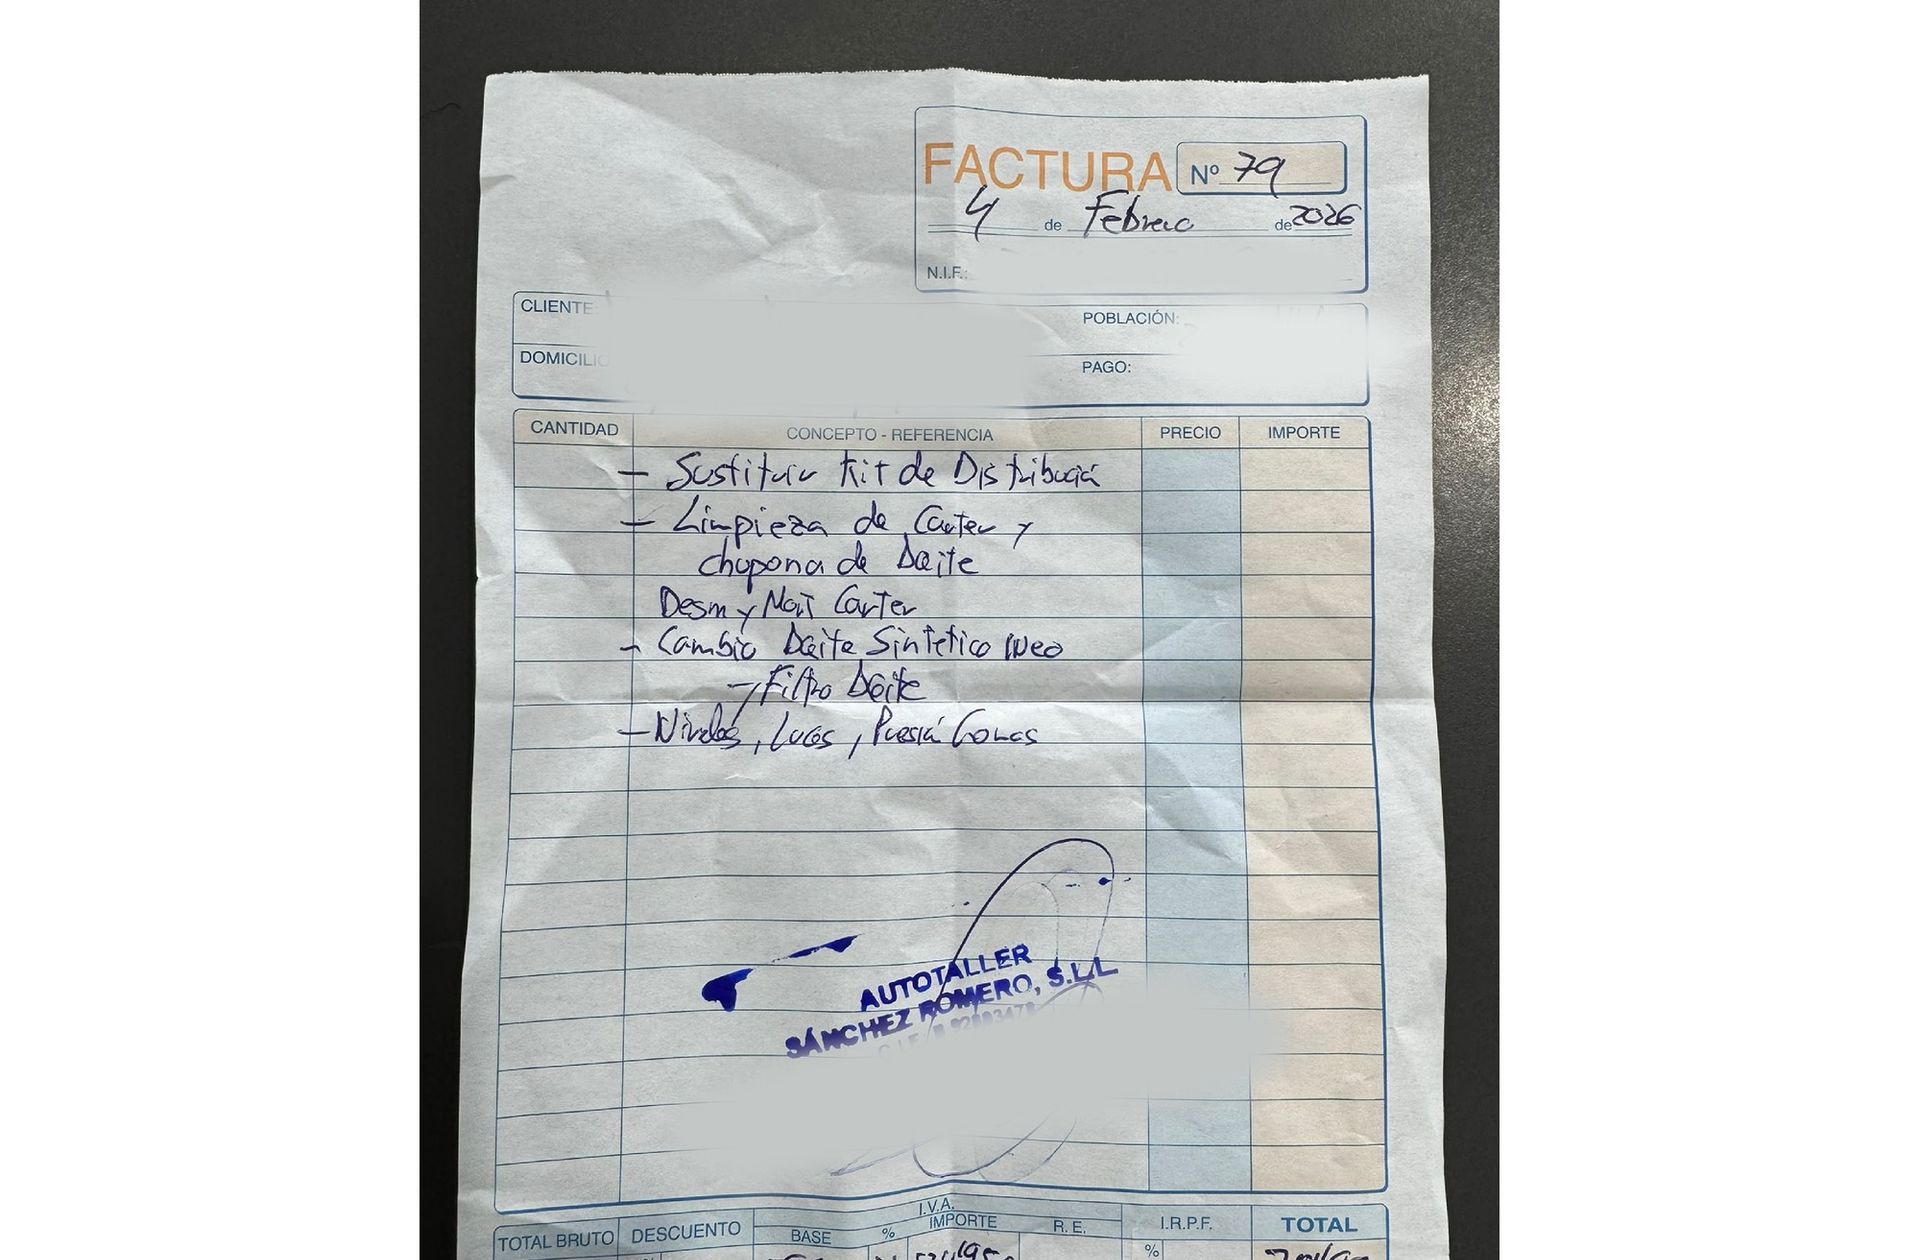 FACTURA Nº 79
4 de Febrero de 2026
N.I.F.:
CLIENTE:
POBLACIÓN:
DOMICILIO
PAGO:
CANTIDAD CONCEPTO - REFERENCIA PRECIO IMPORTE
- Sustituir Kit de Distribución
- Limpieza de Carter y
chupona de Aceite
Desm y Mont Carter
- Cambio Aceite Sintetico
- Filtro Aceite
- Niveles, Luces, Presión Gomas
AUTOTALLER
SÁNCHEZ ROMERO, S.L.L.
I.V.A.
TOTAL BRUTO DESCUENTO BASE % IMPORTE R. E. I.R.P.F. TOTAL
%